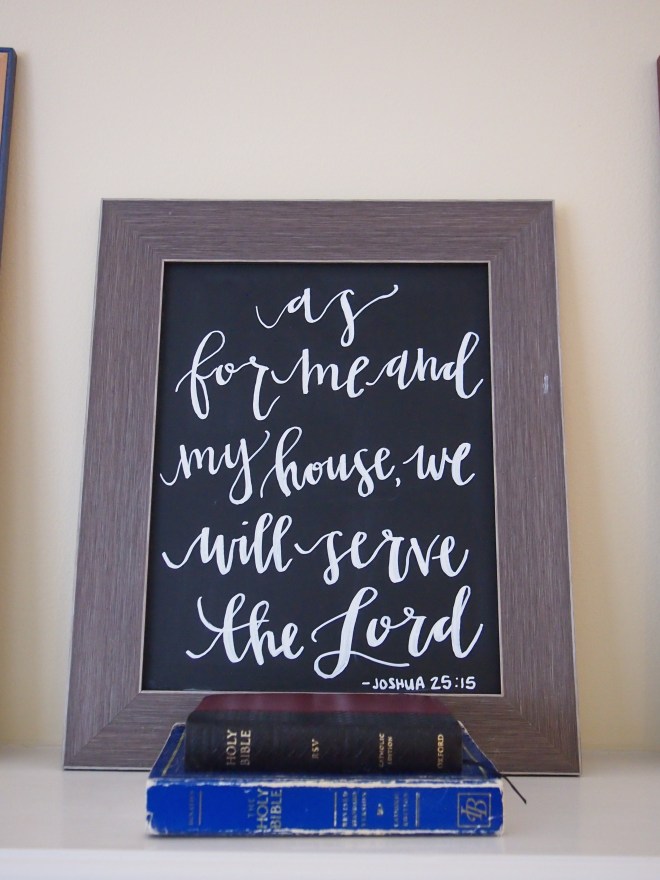 as
for me and
my house, we
will serve
the Lord
-JOSHUA 25:15
HOLY BIBLE
RSV
CATHOLIC EDITION
OXFORD
THE
HOLY BIBLE